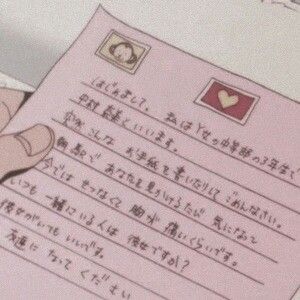 はじめまして、私はと女の中等部の3年生で
中村 といいます。
突然こんなお手紙を書いたりしてごめんなさい。
朝 電車であなたを見かけるたび気になって
今では せつなくて 胸が痛いくらいです。
いつも一緒にいる人は 彼女ですか?
彼女がいてもいいです。
友達になってください